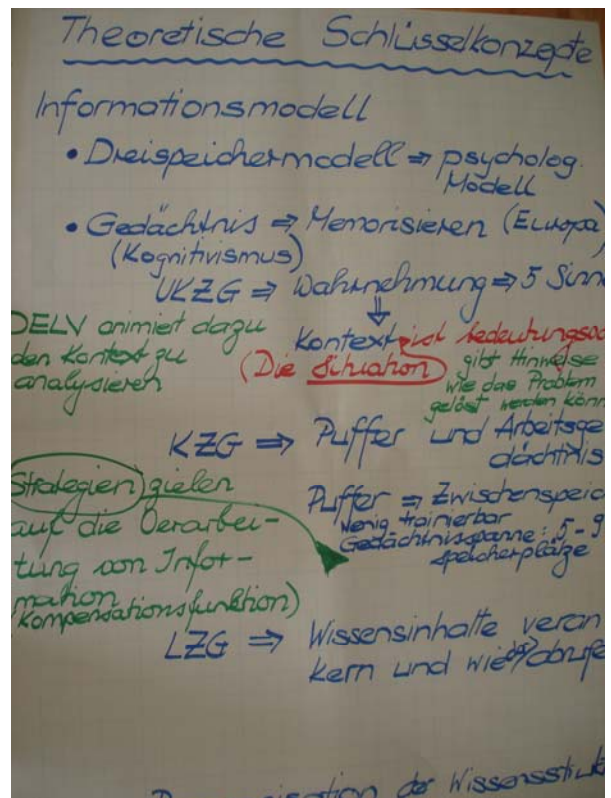 Theoretische Schlüsselkonzepte
Informationsmodell
• Dreispeichermodell ⇒ psycholog.
Modell
• Gedächtnis ⇒ Memorisieren (Europa)
(Kognitivismus)
UKZG ⇒ Wahrnehmung ⇒ 5 Sinn
⇓
DELV animiert dazu
den Kontext zu
analysieren
Kontext ist bedeutungs
(Die Situation)
gibt Hinweise
wie das Problem
gelöst werden könn
KZG ⇒ Puffer und Arbeitsge
dächtnis
Strategien zielen
auf die Verarbei-
tung von Infor-
mation
(Kompensationsfunktion)
Puffer ⇒ Zwischenspeic
wenig trainierbar
Gedächtnisspanne: 5-9
Speicherplätze
LZG ⇒ Wissensinhalte veran
kern und wieder abrufe
der Wissensstrukt